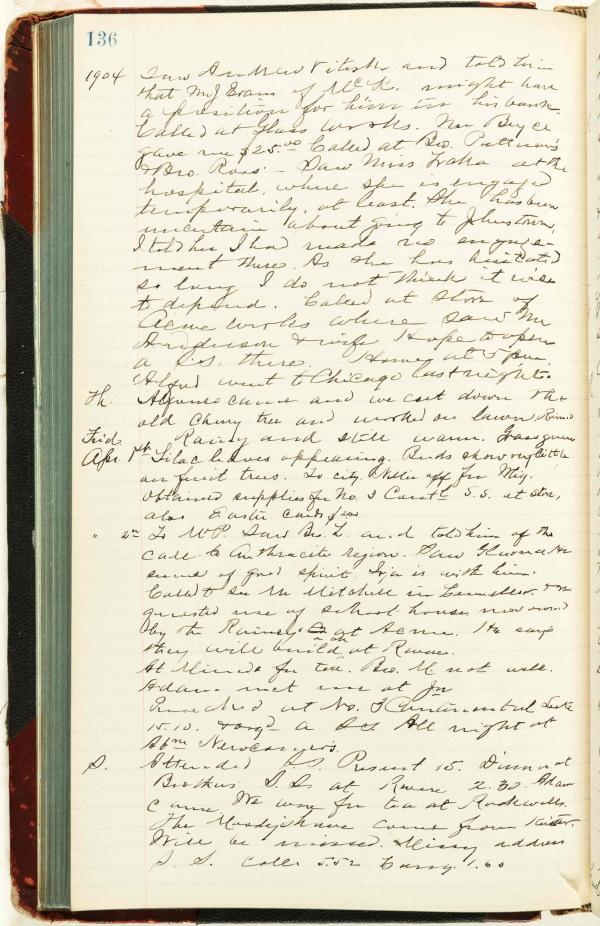 136
1904 Saw Andrew and told him
that Mr J Evans of McK. might have
a position for him in his bank.
Called at Glass Works. Mr Bryce
gave me $25.00 Called at Bro.
& Bro. Ross. - Saw Miss at the
hospital, where she is engaged
temporarily, at least. She has been
uncertain about going to Johnstown,
I told her I had made no engage-
ment there. As she has hesitated
so long I do not think it wise
to depend. Called at store of
Acme Works where saw Mr
Anderson & wife. Hope to open
a S.S. there. Home at 5 pm.
Alfred went to Chicago last night.
Th. came and we cut down the
old cherry tree and worked on lawn.
Frid. Rainy and still warm. Grass green
Apr. 1st Lilac leaves appearing. Buds show very little
on fruit trees. To city. Nellie off for Mtg.
Obtained supplies for No. 3 S.S. at store,
also Easter cards
" 2nd To M.P. Saw Bro. L. and told him of the
call to Anthracite region. Saw
some of good spirit. is with him.
Called to see Mr Mitchell in &
quested use of school house now owned
by the Raineys at Acme. He says
they will build at Revere.
At for tea. Bro. M not well.
Adam met me at
Preached at No. 3 Luke
15.10. & org'd a S.S. All night at
Newcomer's.
S. Attended S.S. Present 15. Dinner at
Brothers S.S. at Revere 2.30. Adam
came. We were for tea at Rockwells.
The have come from
Will be missed. Missy address
S.S. Coll. 5.52 1.60